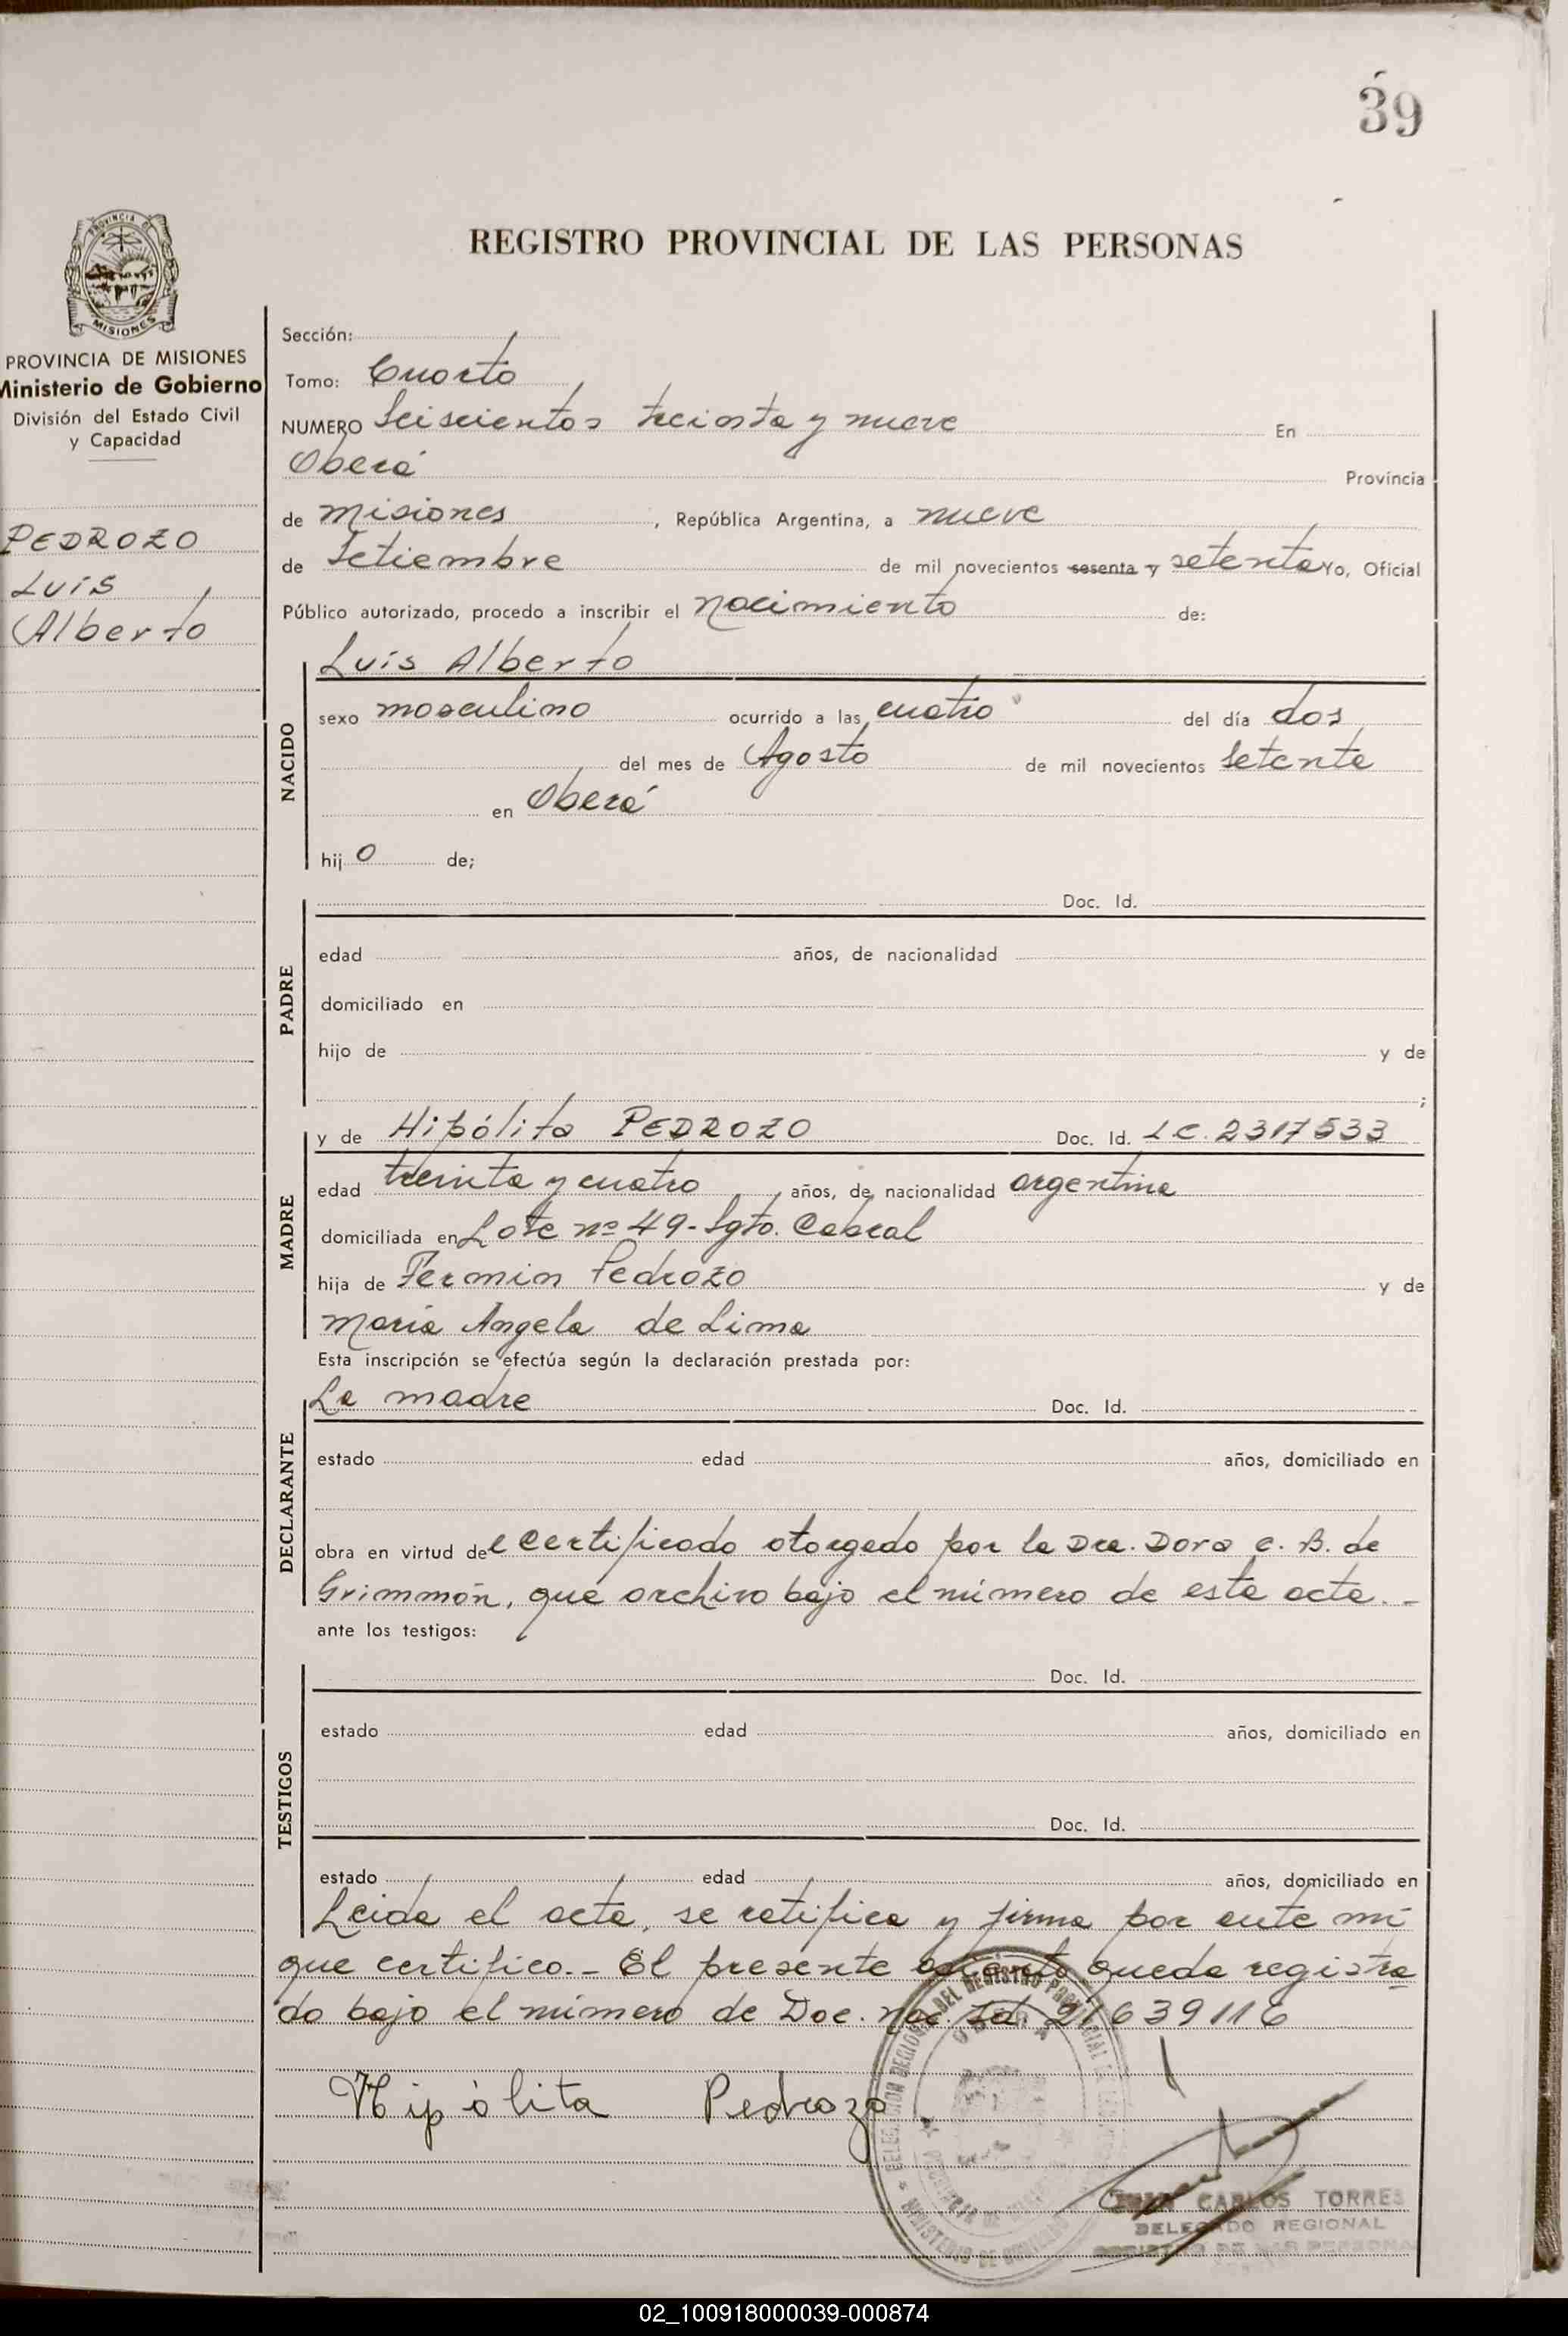 39
PROVINCIA DE
MISIONES
PROVINCIA DE MISIONES
Ministerio de Gobierno
División del Estado Civil
y Capacidad
PEDROZO
Luis
Alberto
REGISTRO PROVINCIAL DE LAS PERSONAS
Sección:
Tomo: Cuarto
NUMERO Seiscientos treinta y nueve En
Oberá Provincia
de Misiones , República Argentina, a nueve
de Setiembre de mil novecientos sesenta y setenta Yo, Oficial
Público autorizado, procedo a inscribir el nacimiento de:
NACIDO
Luis Alberto
sexo masculino ocurrido a las cuatro del día dos
del mes de Agosto de mil novecientos setenta
en Oberá
hij o de;
PADRE
Doc. Id.
edad años, de nacionalidad
domiciliado en
hijo de y de
;
MADRE
y de Hipólita PEDROZO Doc. Id. L.C. 2317533
edad treinta y cuatro , años, de nacionalidad argentina
domiciliada en Lote nº 49- Sgto. Cabral
hija de Fermin Pedrozo y de
María Angela de Lima
Esta inscripción se efectúa según la declaración prestada por:
DECLARANTE
La madre Doc. Id.
estado edad años, domiciliado en
obra en virtud del certificado otorgado por la Dra. Dora C. B. de
Grimmón, que archivo bajo el número de esta acta.-
ante los testigos:
TESTIGOS
Doc. Id.
estado edad años, domiciliado en
Doc. Id.
estado edad años, domiciliado en
Leida el acta, se ratifica y firma por ante mi
que certifico.- El presente asiento queda registra
do bajo el número de Doc. Nac. Id. 21639116
Hipólita Pedrozo
CARLOS TORRES
DELEGADO REGIONAL
02_100918000039-000874